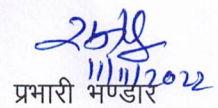 11/11/2022
प्रभारी भण्डार